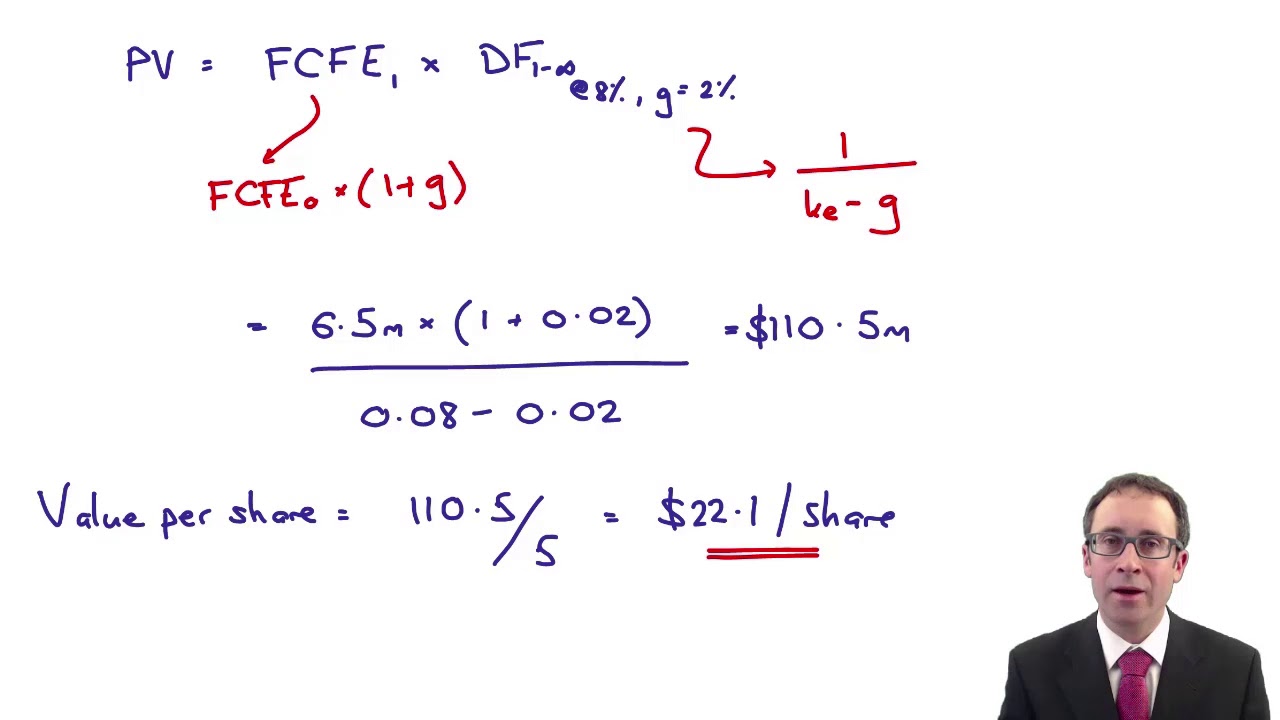 PV = FCFE₁ × DF₁₋∞ @ 8%, g = 2%
FCFE₀ × (1 + g)
1
ke - g
= 6.5m × (1 + 0.02) = $110.5m
0.08 - 0.02
Value per share = 110.5/5 = $22.1 / share